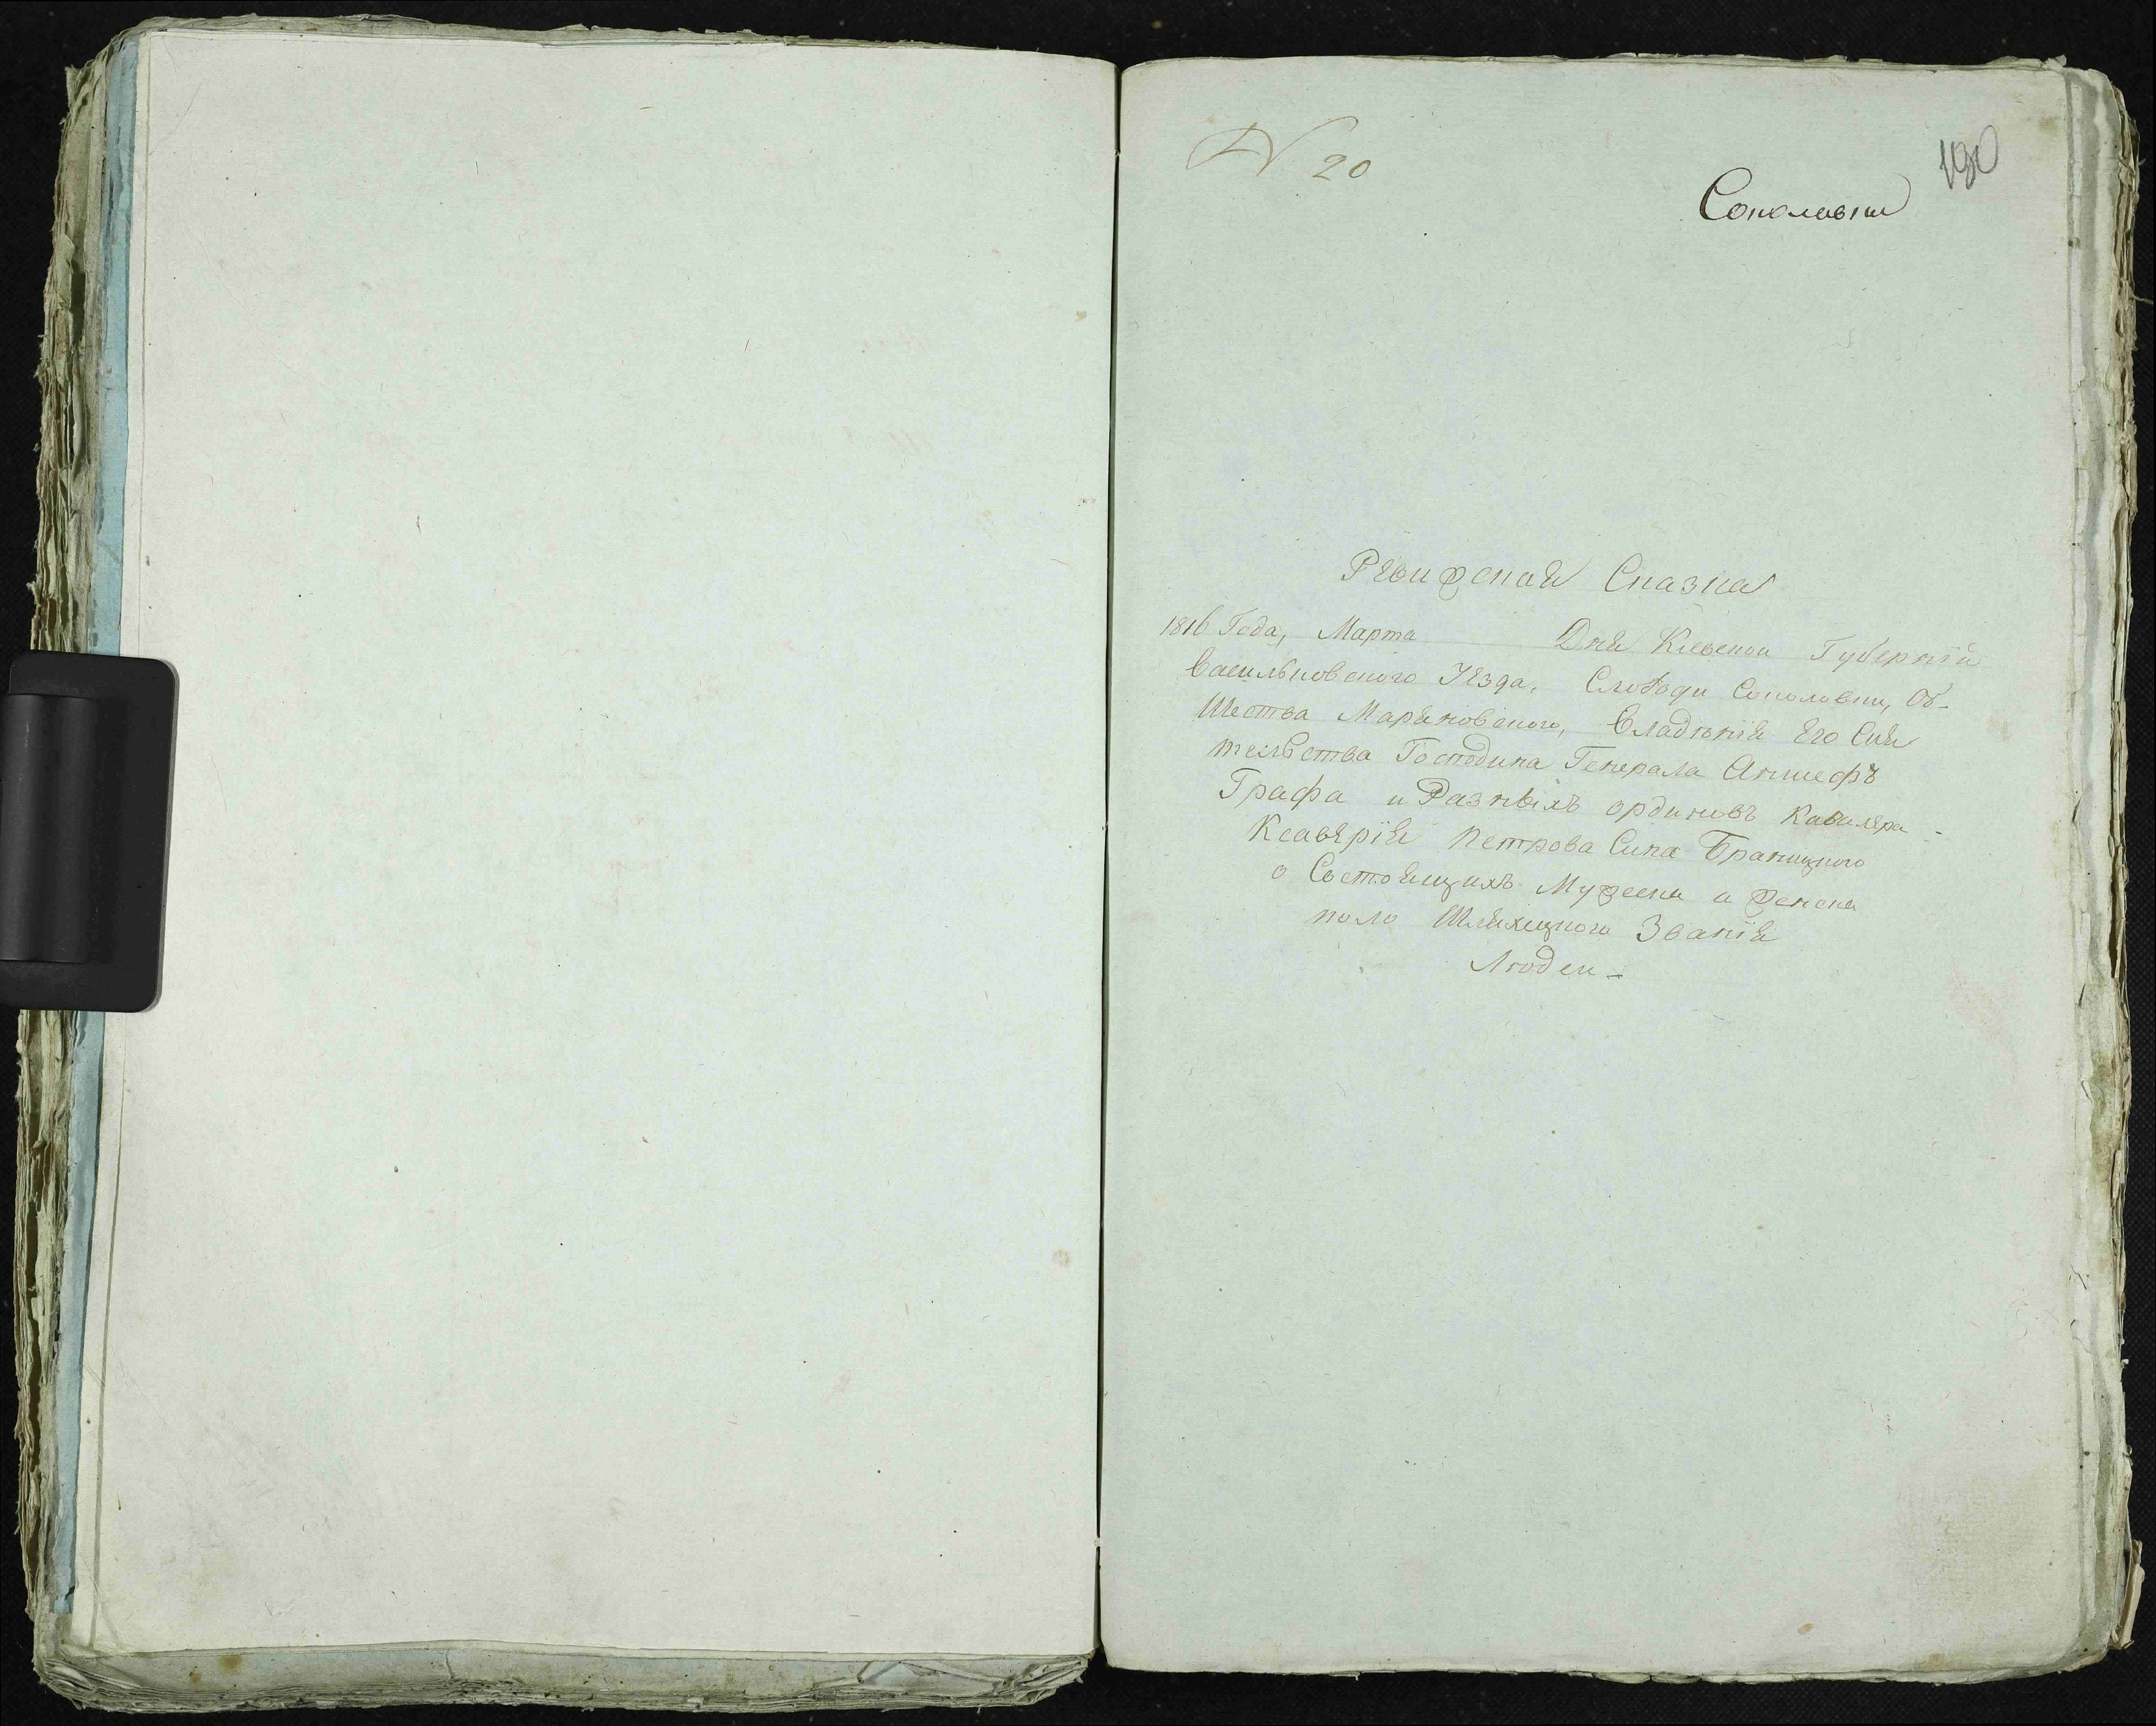 N 20
190
Соколовки
Ревизская Сказка
1816 Года, Марта Дня Киевской Губерніи
Васильковского Уезда, Слободи Соколовки, Об-
Шества Марьяновского, Владѣнія Его Сия
тельства Господина Генерала Аншефъ
Графа и Разныхъ ординовъ Кавалера -
Ксаверія Петрова Сина Браницкого
о Состоящихъ Мужеска и женска
поло Шляхецкого Званія
Людеи -